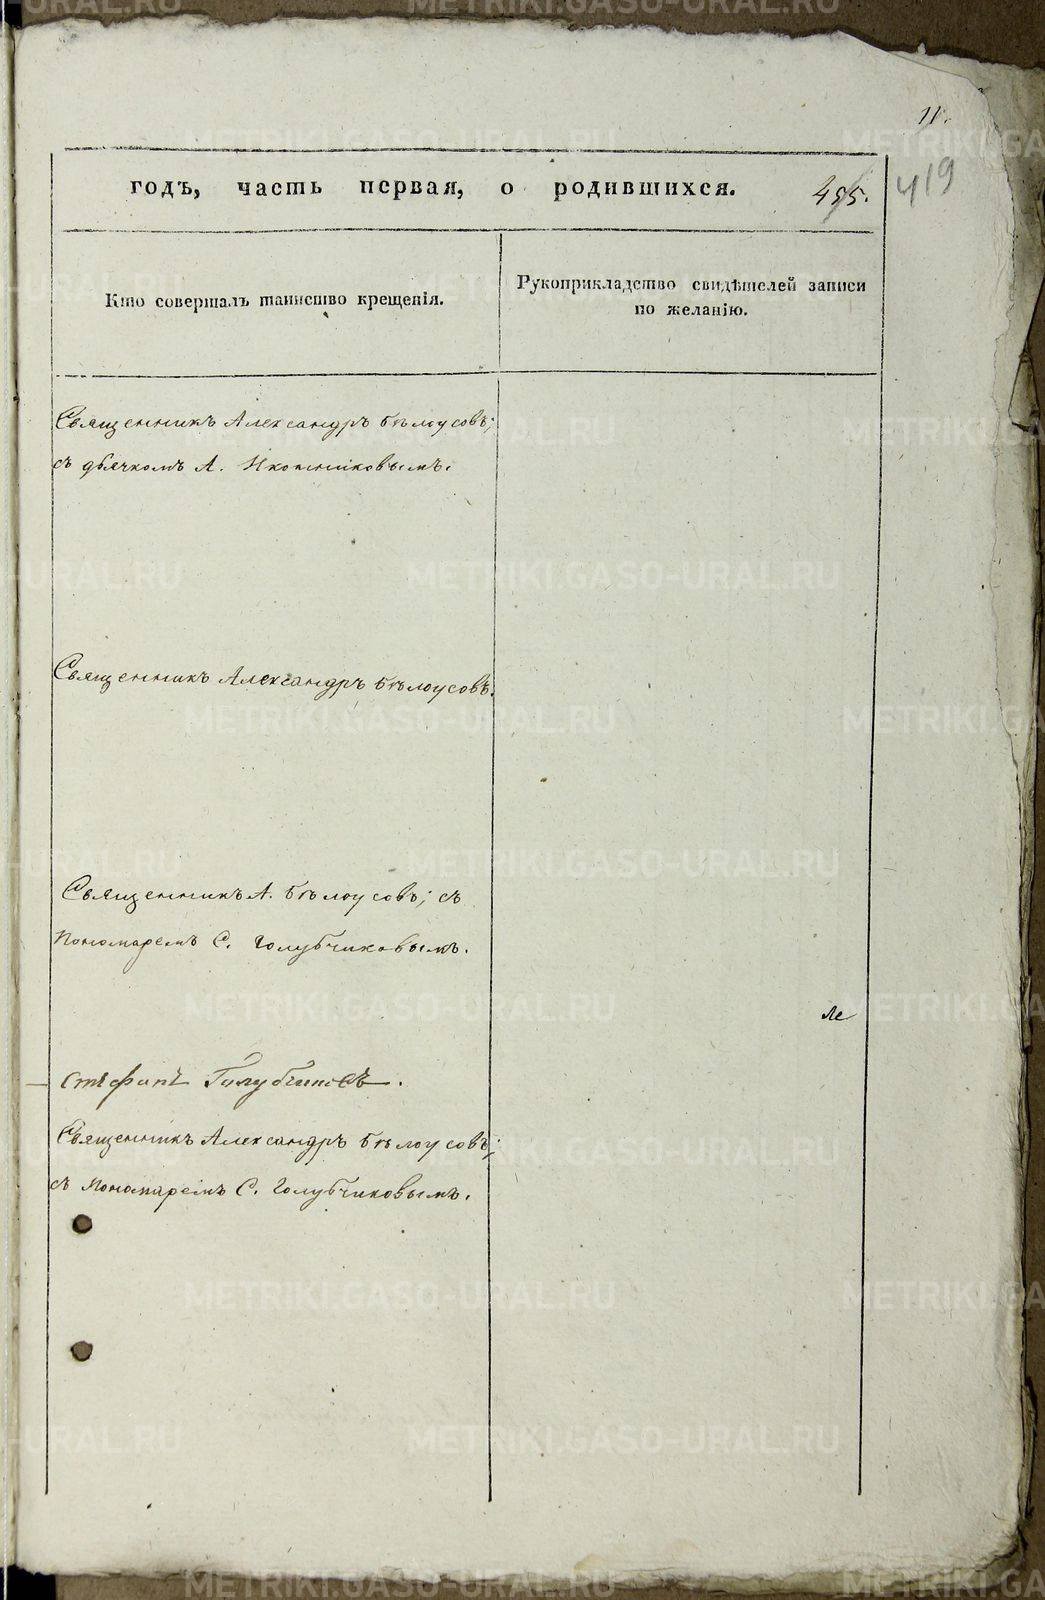 11.
годъ, часть первая, о родившихся.
455.
419
Кто совершалъ таинство крещенія.
Рукоприкладство свидѣтелей записи
по желанію.
Священникъ Александръ Бѣлоусовъ;
съ дьячкомъ А. Иконниковымъ.
Священникъ Александръ Бѣлоусовъ.
Священникъ А. Бѣлоусовъ; съ
Пономаремъ С. Голубчиковымъ.
Ле
Священникъ Александръ Бѣлоусовъ;
съ Пономаремъ С. Голубчиковымъ.
METRIKI.GASO-URAL.RU